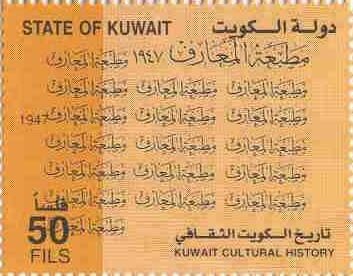 STATE OF KUWAIT دولة الكويت
مطبعة المعارف ١٩٤٧ مطبعة المعارف
مطبعة المعارف مطبعة المعارف مطبعة المعارف
مطبعة المعارف مطبعة المعارف مطبعة المعارف 1947
مطبعة المعارف مطبعة المعارف مطبعة المعارف
مطبعة المعارف مطبعة المعارف مطبعة المعارف
مطبعة المعارف مطبعة المعارف مطبعة المعارف
فلساً
50
مطبعة المعارف
FILS
تاريخ الكويت الثقافي
KUWAIT CULTURAL HISTORY